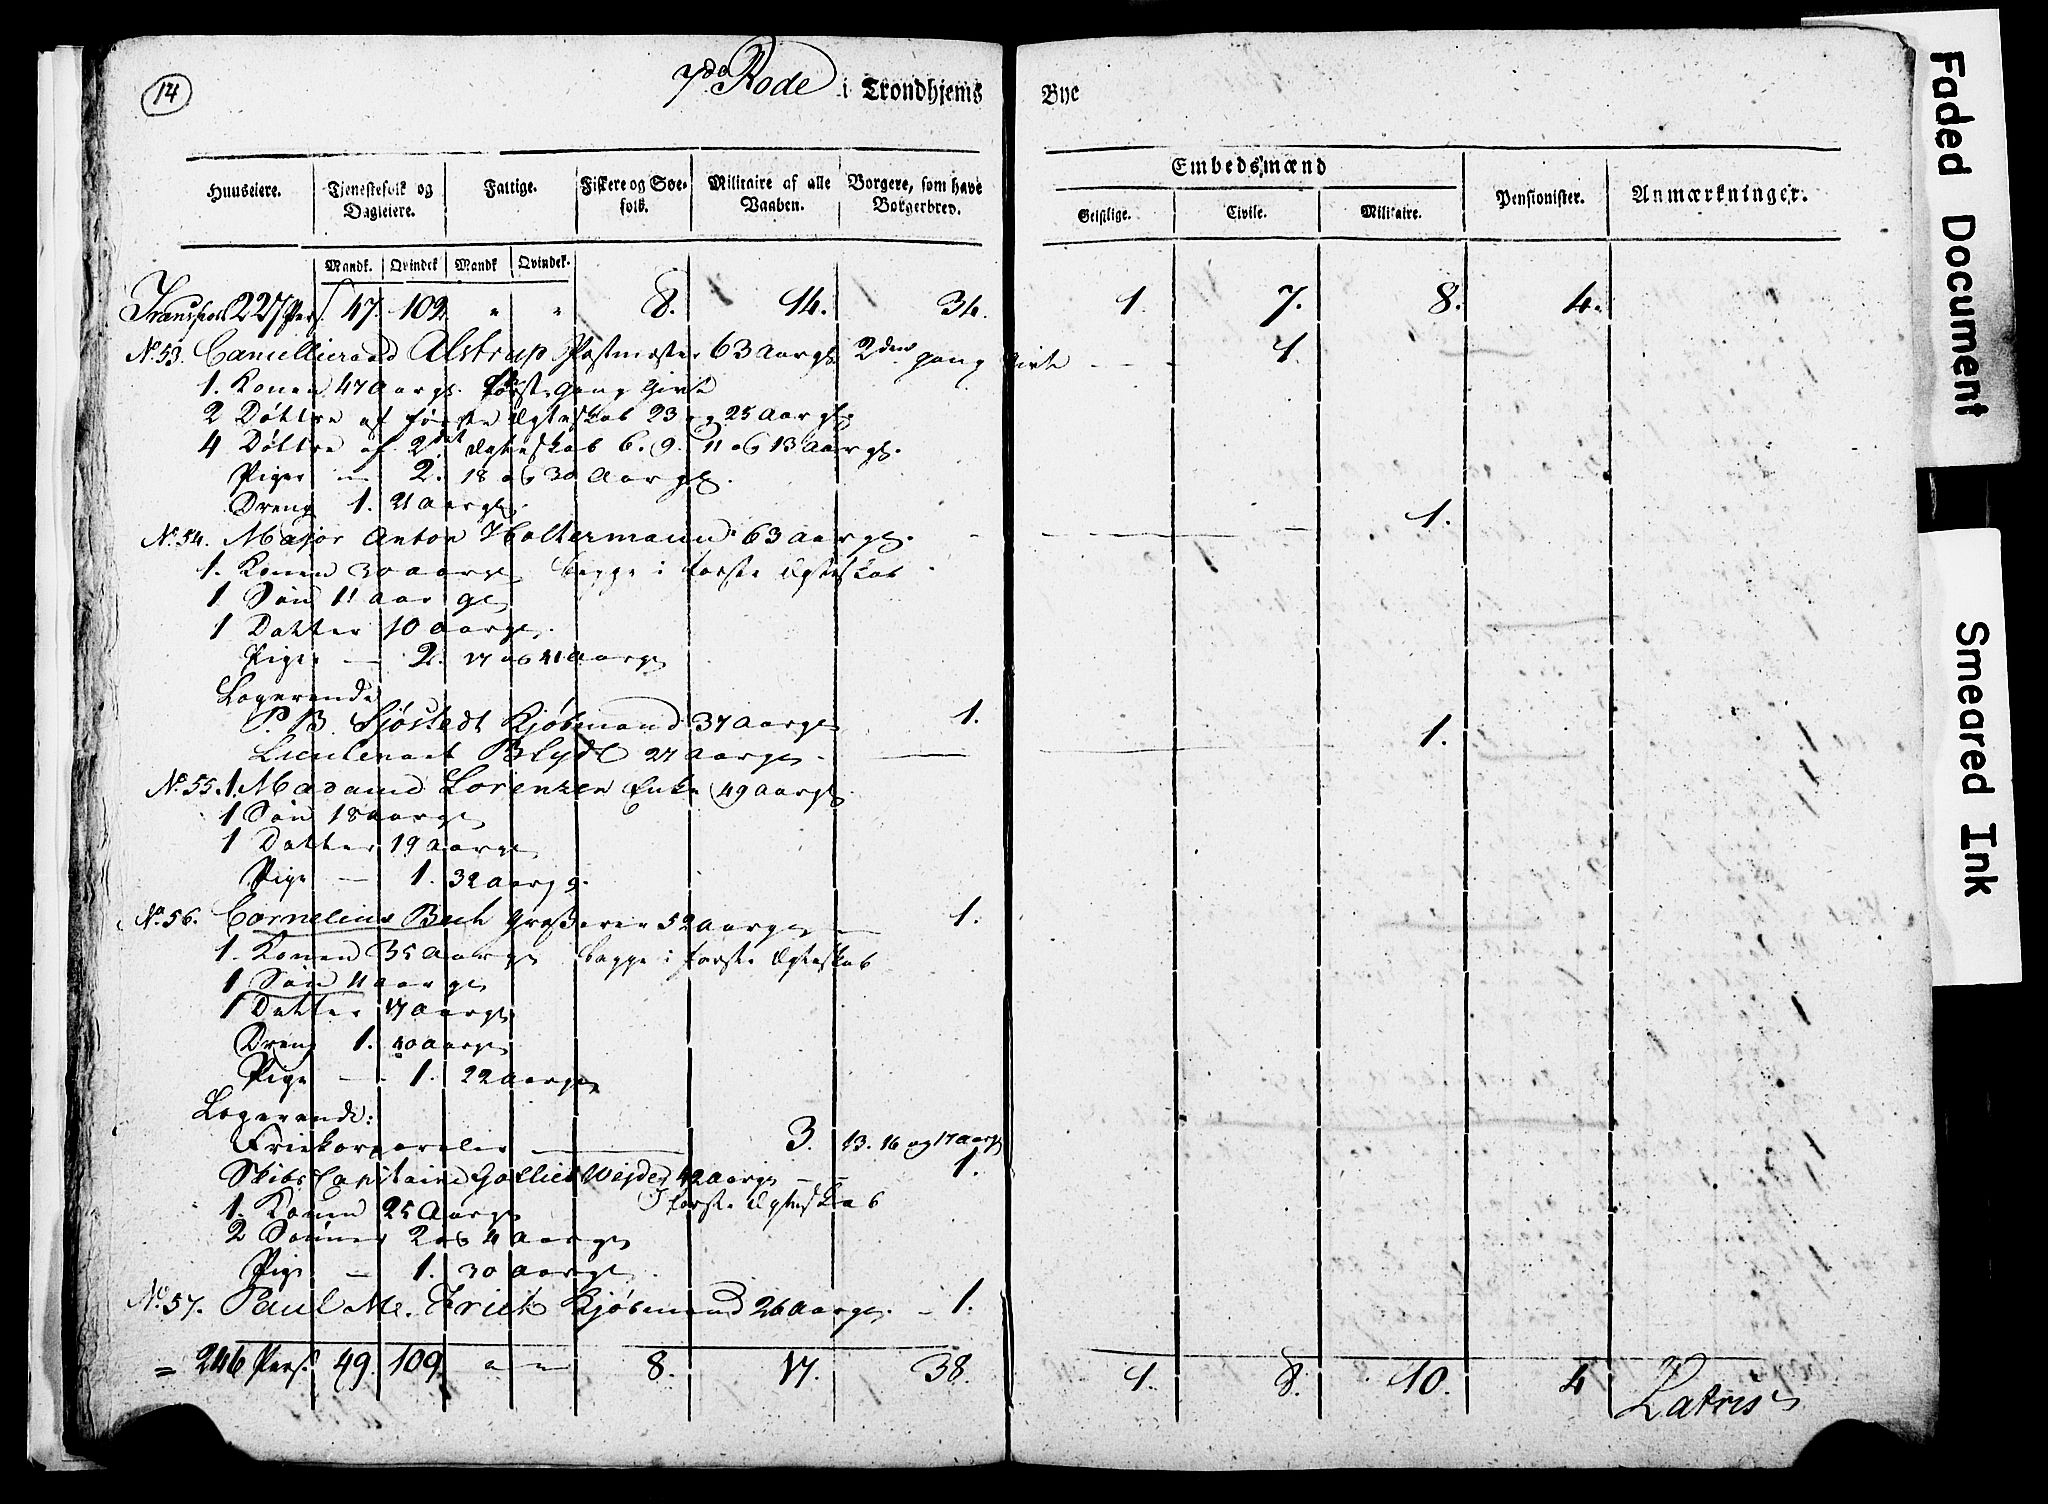 14
7de Rode i Trondhjems Bye
Huuseiere. Tjenestefolk og Dagleiere. Fattige. Fiskere og Søefolk. Militaire af alle Vaaben. Borgere, som have Borgerbrev. Embedsmænd Geistlige. Civile. Militaire. Pensionister. Anmærkninger.
Mandk. Qvindek Mandk Qvindek.
Transport 227 Pers. 47. 102. " " 8. 14. 34. 1. 7. 8. 4.
No. 53. Cancellieraad Alstrup Postmester 63 Aar gl. 2den gang givt - - - 1.
1. Konen 47 Aar gl. første gang givt
2 Døttre af første Ægteskab 23 og 25 Aar gl.
4 Døttre af 2det Ægteskab 6. 9. 11 og 13 Aar gl.
Piger — 2. 18 og 30 Aar gl.
Dreng 1. 21 Aar gl.
No. 54. Major Anton Holtermann 63 aar gl. - 1.
1. Konen 30 aar gl. begge i første Ægteskab
1 Søn 11 aar gl
1 Datter 10 aar gl.
Piger — 2. 17 og 41 Aar gl
Logerende
P. B. Sjøstedt Kjøbmand 37 Aar gl 1.
Lieutenant Blydt 27 Aar gl. 1.
No. 55. 1. Madame Lorenzen Enke 49 Aar gl.
1 Søn 18 aar gl
1 Datter 19 Aar gl
Pige — 1. 32 Aar g.
No. 56. Cornelius Beck Grosserer 52 Aar gl — 1.
1. Konen 35 Aar gl begge i første Ægteskab
1 Søn 11 aar gl
1 Datter 17 Aar gl
Dreng 1. 40 Aar gl
Pige — 1. 22 Aar gl
Logerende:
3. 13. 16 og 17 Aar gl
Skibs Capitaine Gotlieb Wejde 42 Aar gl — 1.
1. Konen 25 Aar gl I første Ægteskab
2 Sønner 2 og 4 Aar gl
Pige — 1. 30 Aar gl.
No. 57. Paul M. Erich Kjøbmand 26 Aar gl. — 1.
= 246 Pers. 49. 109. " " 8. 17. 38. 1. 8. 10. 4 Latris
Faded Document
Smeared Ink